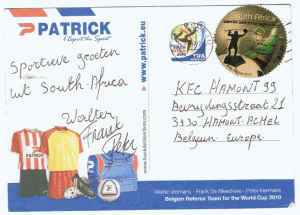 PATRICK
L'Esprit du Sport
www.patrick.eu
Sportieve groeten
uit South-Africa
Walter
Frank
Peter
South Africa
KFC HAMONT 99
Bevrijdingsstraat 21
3930 HAMONT-ACHEL
Belgium - Europe
PATRICK
Walter Vromans - Frank De Bleeckere - Peter Hermans
Belgian Referee Team for the World Cup 2010